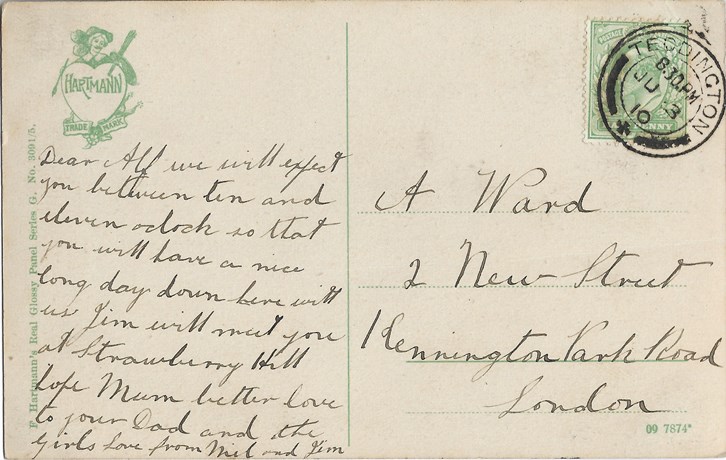 HARTMANN
TRADE MARK
F. Hartmann's Real Glossy Panel Series G. No. 3091/5.
Dear Alf we will expect
you between ten and
eleven oclock so that
you will have a nice
long day down here with
us Jim will meet you
at Strawberry Hill
hope Mum better love
to your Dad and the
girls Love from Mil and Jim
POSTAGE
PENNY
TEDDINGTON
8.30PM
JU 3
10
A Ward
2 New Street
Kennington Park Road
London
09 7874*